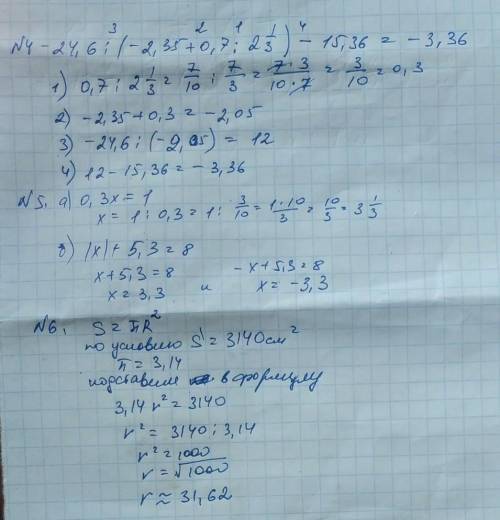 3 2 1 4
№4 -24,6 : (-2,35 + 0,7 : 2 1/3) - 15,36 = -3,36
1) 0,7 : 2 1/3 = 7/10 : 7/3 = 7·3/10·7 = 3/10 = 0,3
2) -2,35 + 0,3 = -2,05
3) -24,6 : (-2,05) = 12
4) 12 - 15,36 = -3,36
№5. а) 0,3x = 1
x = 1 : 0,3 = 1 : 3/10 = 1·10/3 = 10/3 = 3 1/3
б) |x| + 5,3 = 8
x + 5,3 = 8 и -x + 5,3 = 8
x = 3,3 x = -3,3
№6. S = πR²
по условию S = 3140 см²
π = 3,14
подставим в формулу
3,14 r² = 3140
r² = 3140 : 3,14
r² = 1000
r = √1000
r ≈ 31,62